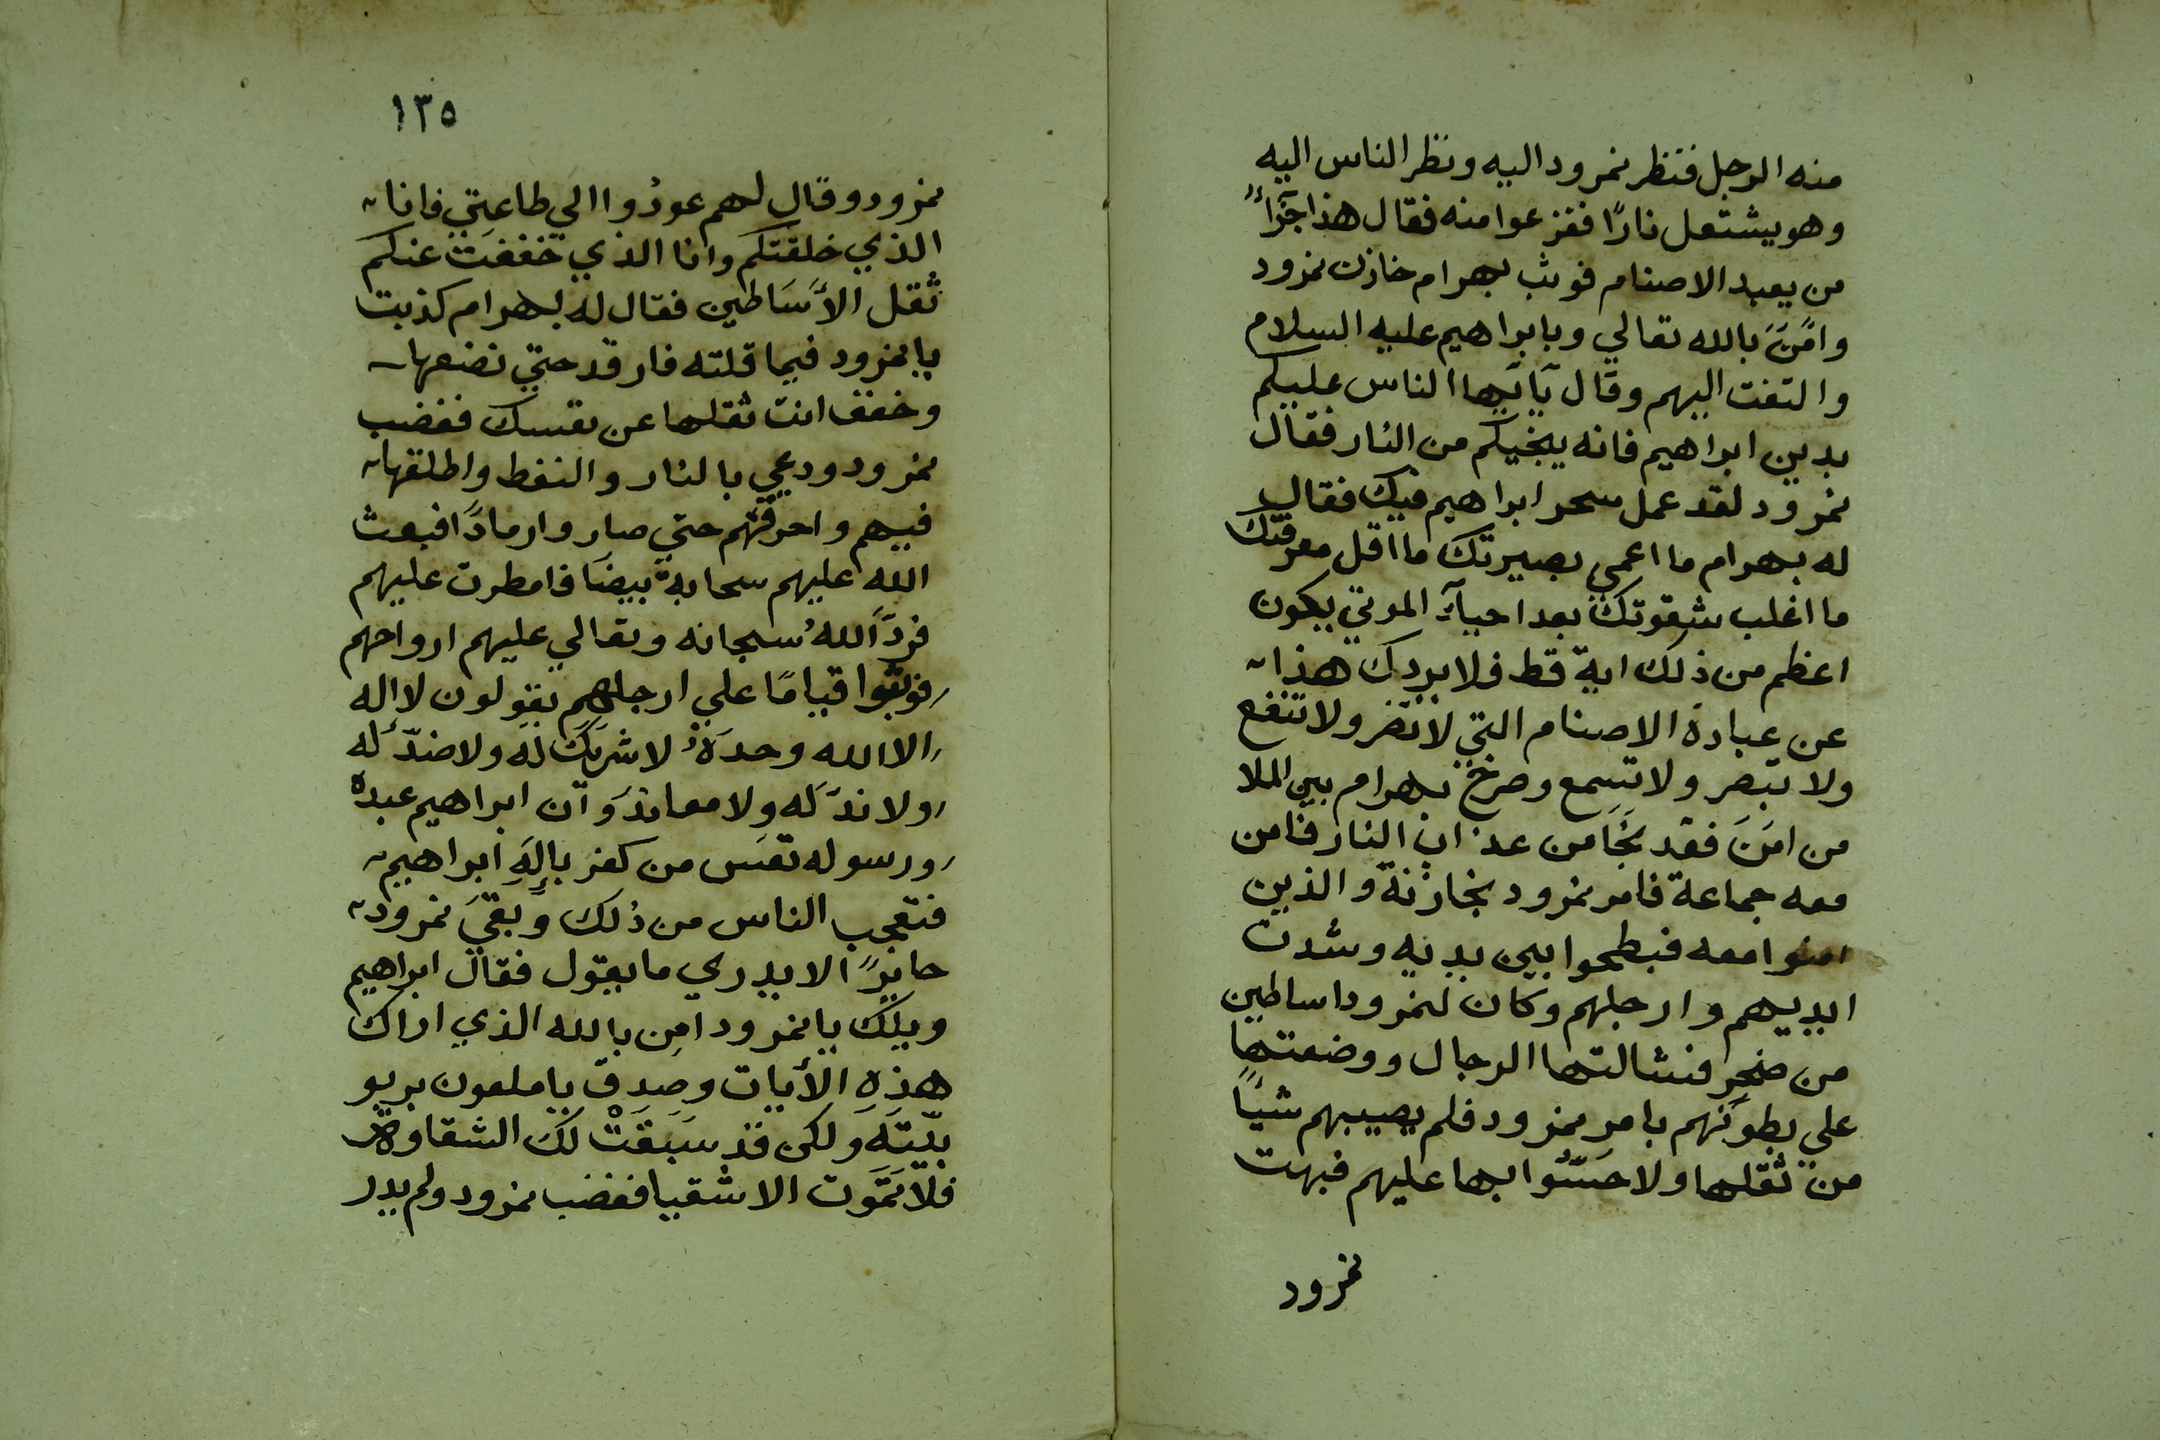 منه الرجل فنظر نمرود اليه ونظر الناس اليه
وهو يشتعل نارًا ففزعوا منه فقال هذا جَزآءُ
من يعبد الاصنام فوثب بهرام خازن نمرود
وامَنَ بالله تعالي وبابراهيم عليه السلام
والتفت اليهم وقال يآ ايها الناس عليكم
بدين ابراهيم فانه ينجيكم من النار فقال
نمرود لقد عمل سحر ابراهيم فيك فقال
له بهرام ما اعمي بصيرتك ما اقل معرفتك
ما اغلب شقوتك بعد احيآءِ الموتي يكون
اعظم من ذلك اية قط فلا يردك هذا
عن عبادة الاصنام التي لا تضر ولا تنفع
ولا تبصر ولا تسمع وصرخ بهرام بين الملا
من امَنَ فقد نجَا من عذاب النار فامن
معه جماعة فامر نمرود بخازنة والذين
امنوا معه فبطحوا بين يديه وشدت
ايديهم وارجلهم وكان لنمرود اساطين
من صخر فشالتها الرجال ووضعتها
علي بطونهم بامر نمرود فلم يصيبهم شيًا
من ثقلها ولا حَسُّوا بها عليهم فبهت
نمرود
١٣٥
نمرود وقال لهم عودُوا الي طاعتي فانا
الذي خلقتكم وانا الذي خففت عنكم
ثقل الأسَاطين فقال له بهرام كذبت
يا نمرود فيما قلته فارقد حتي نضعها
وخفف انت ثقلها عن نفسك فغضب
نمرود ودعي بالنار والنفط واطلقها
فيهم واحرقتهم حتي صاروا رمادًا فبعث
الله عليهم سحابة بيضَا فامطرت عليهم
فردَّ اللهُ سبحانه وتعالي عليهم ارواحهم
فوثبوا قيامًا علي ارجلهم يقولون لا اله
الا الله وحدَهُ لا شريكَ له ولا ضدَّ له
ولا ندَّ له ولا معاندَ وآن ابراهيم عبده
ورسوله تعَس من كفر بإلَهِ ابراهيم
فتعجب الناس من ذلك وَبَقيَ نمرود
حايرًا لا يدري ما يقول فقال ابراهيم
ويلك يا نمرود امِن بالله الذي اراك
هذهِ الأيات وصدق يا ملعون بربو
بيّتَه ولكن قد سَبَقَتْ لك الشقاوة
فلا تمَوَت الا شقيا فغضب نمرود ولم يدر